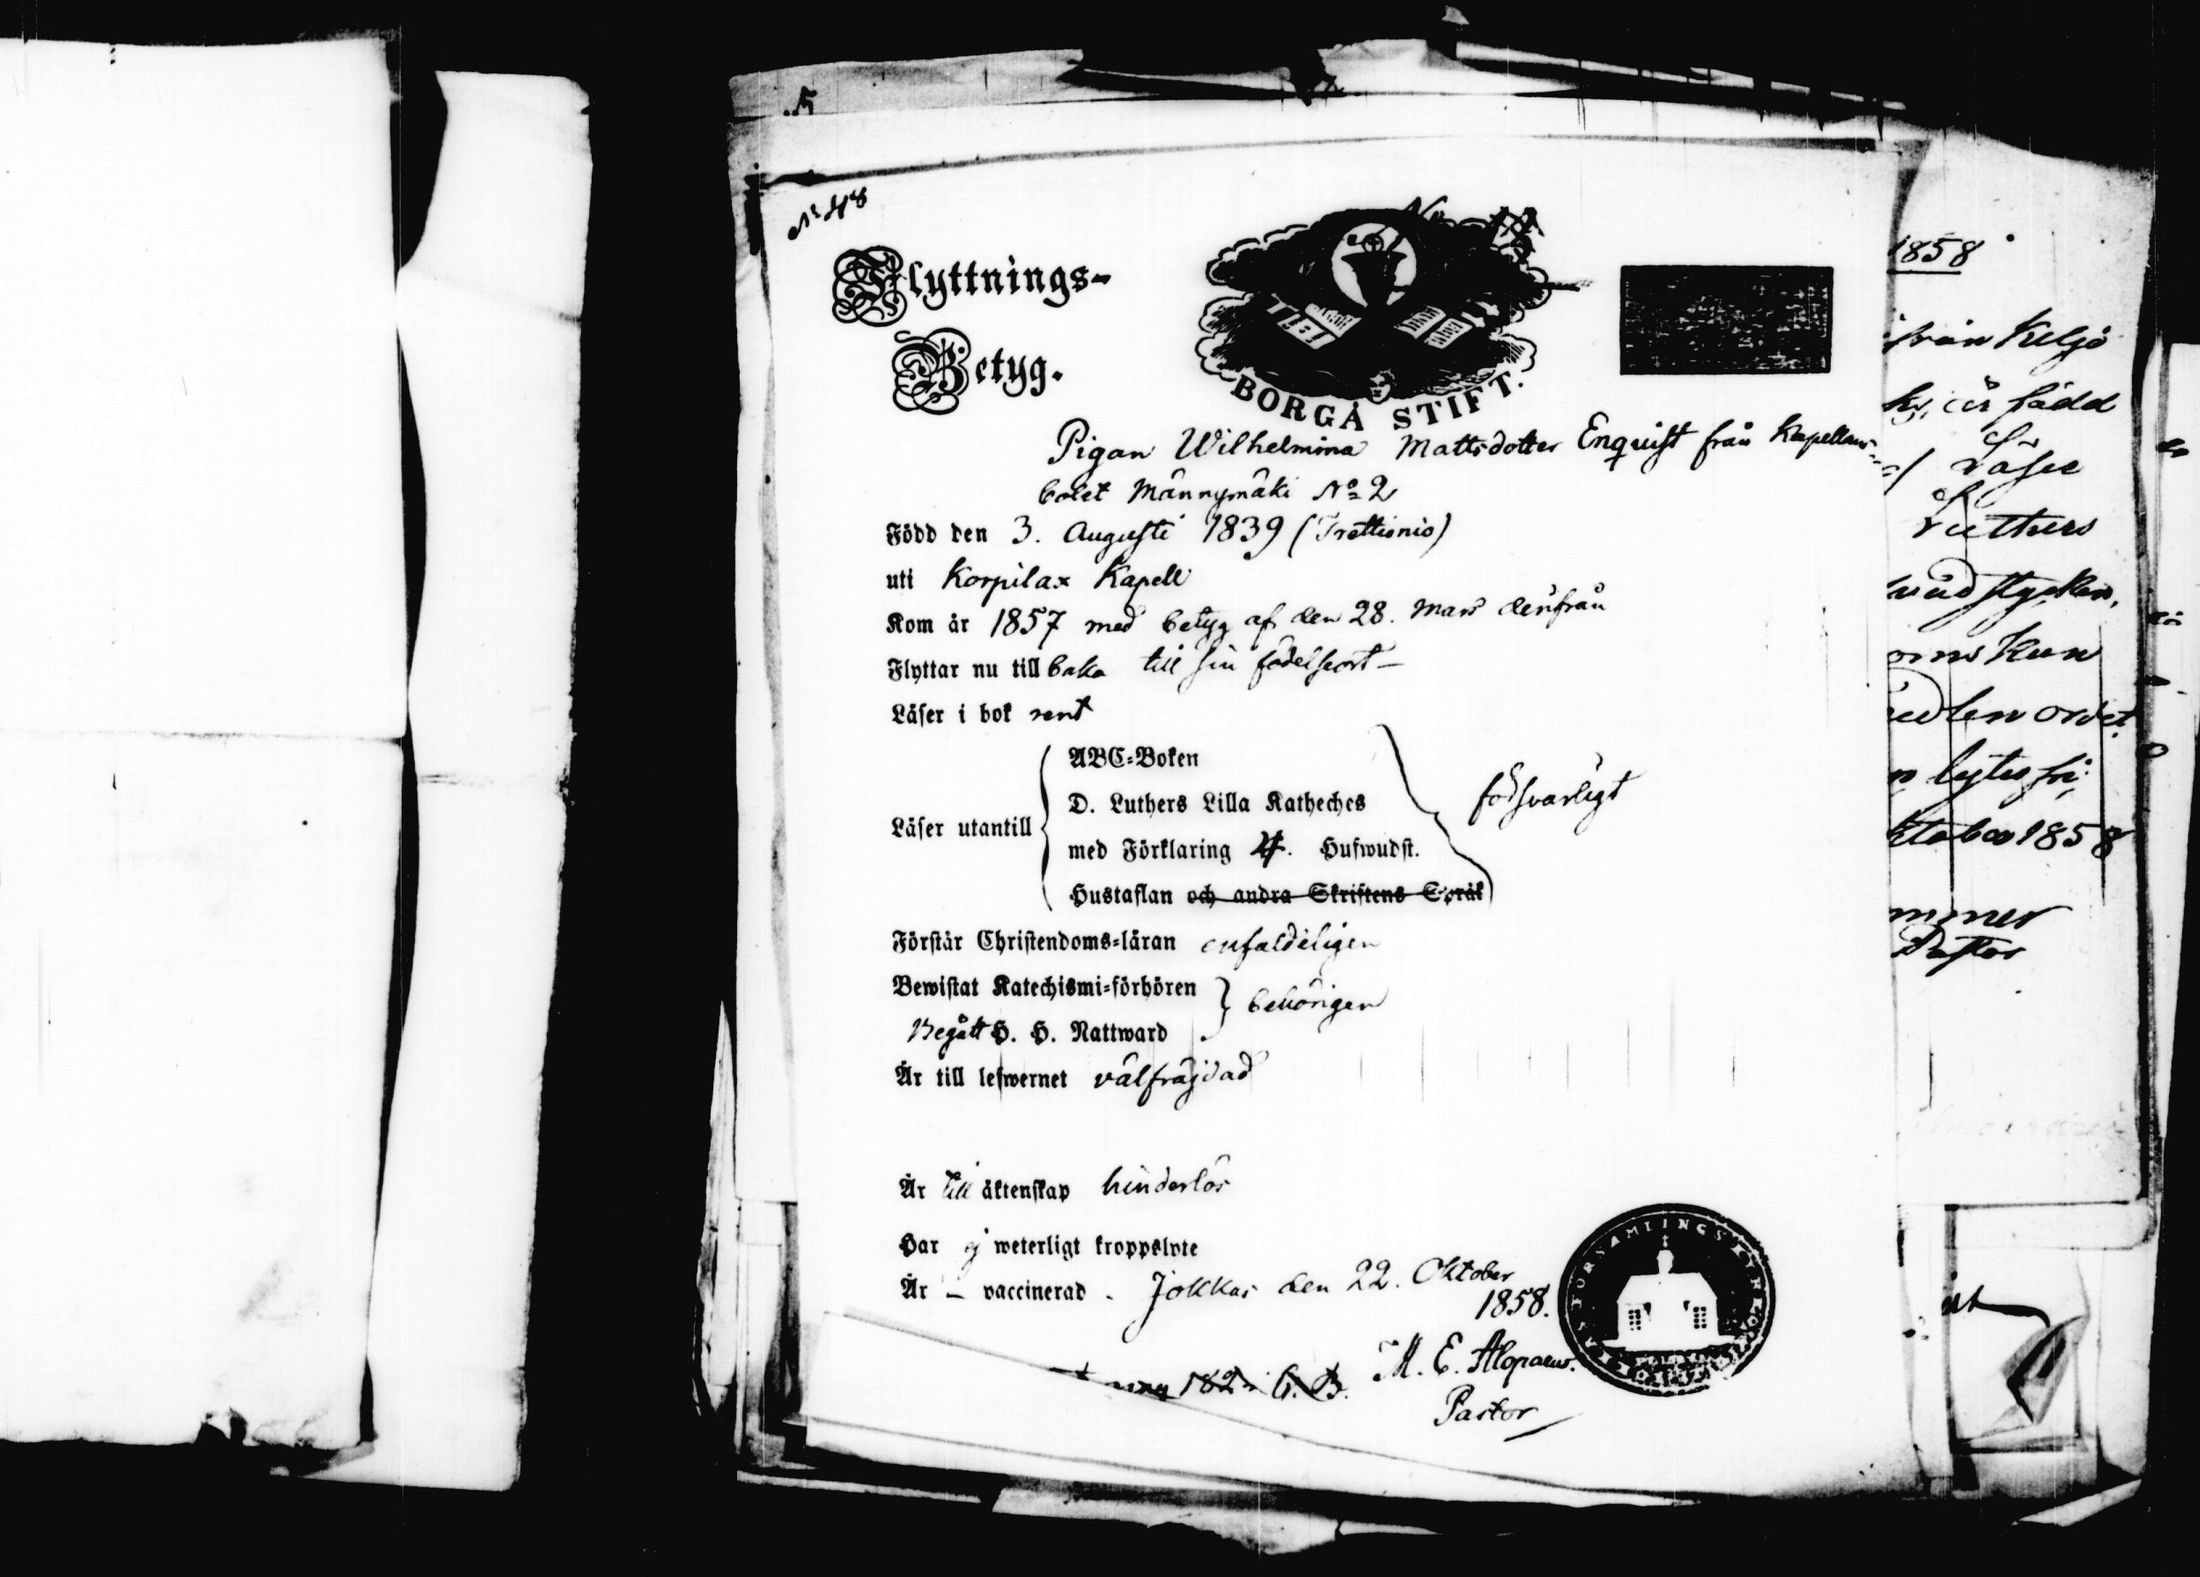 № 48
Flyttnings-
Betyg.
BORGÅ STIFT.
Pigan Wilhelmina Mattsdotter Enquist från Kapellans-
bolet Männymäki No 2
Född den 3. Augusti 1839 (Trettionio)
uti Korpilax Kapell
Kom år 1857 med betyg af den 28. Mars derifrån
Flyttar nu till baka till sin födelseort
Läser i bok rent
ABC-Boken
D. Luthers Lilla Katheches
Läser utantill
försvarligt
med Förklaring 4. Hufwudst.
Hustaflan och andra Skriftens Språk
Förstår Christendoms-läran enfaldeligen
Bewistat Katechismi-förhören
behörigen
Begått H. H. Nattward
Är till lefwernet välfräjdad
Är till äktenskap hinderlös
Har ej weterligt kroppslyte
Är – vaccinerad. Jokkas den 22. Oktober
1858.
M. E. Alopaeus.
Pastor
FÖRSAMLINGS
1858
från Keljo
är född
läser
Luthers
hvudstycken,
ordet
lytesfri;
ktober 1858
Pastor